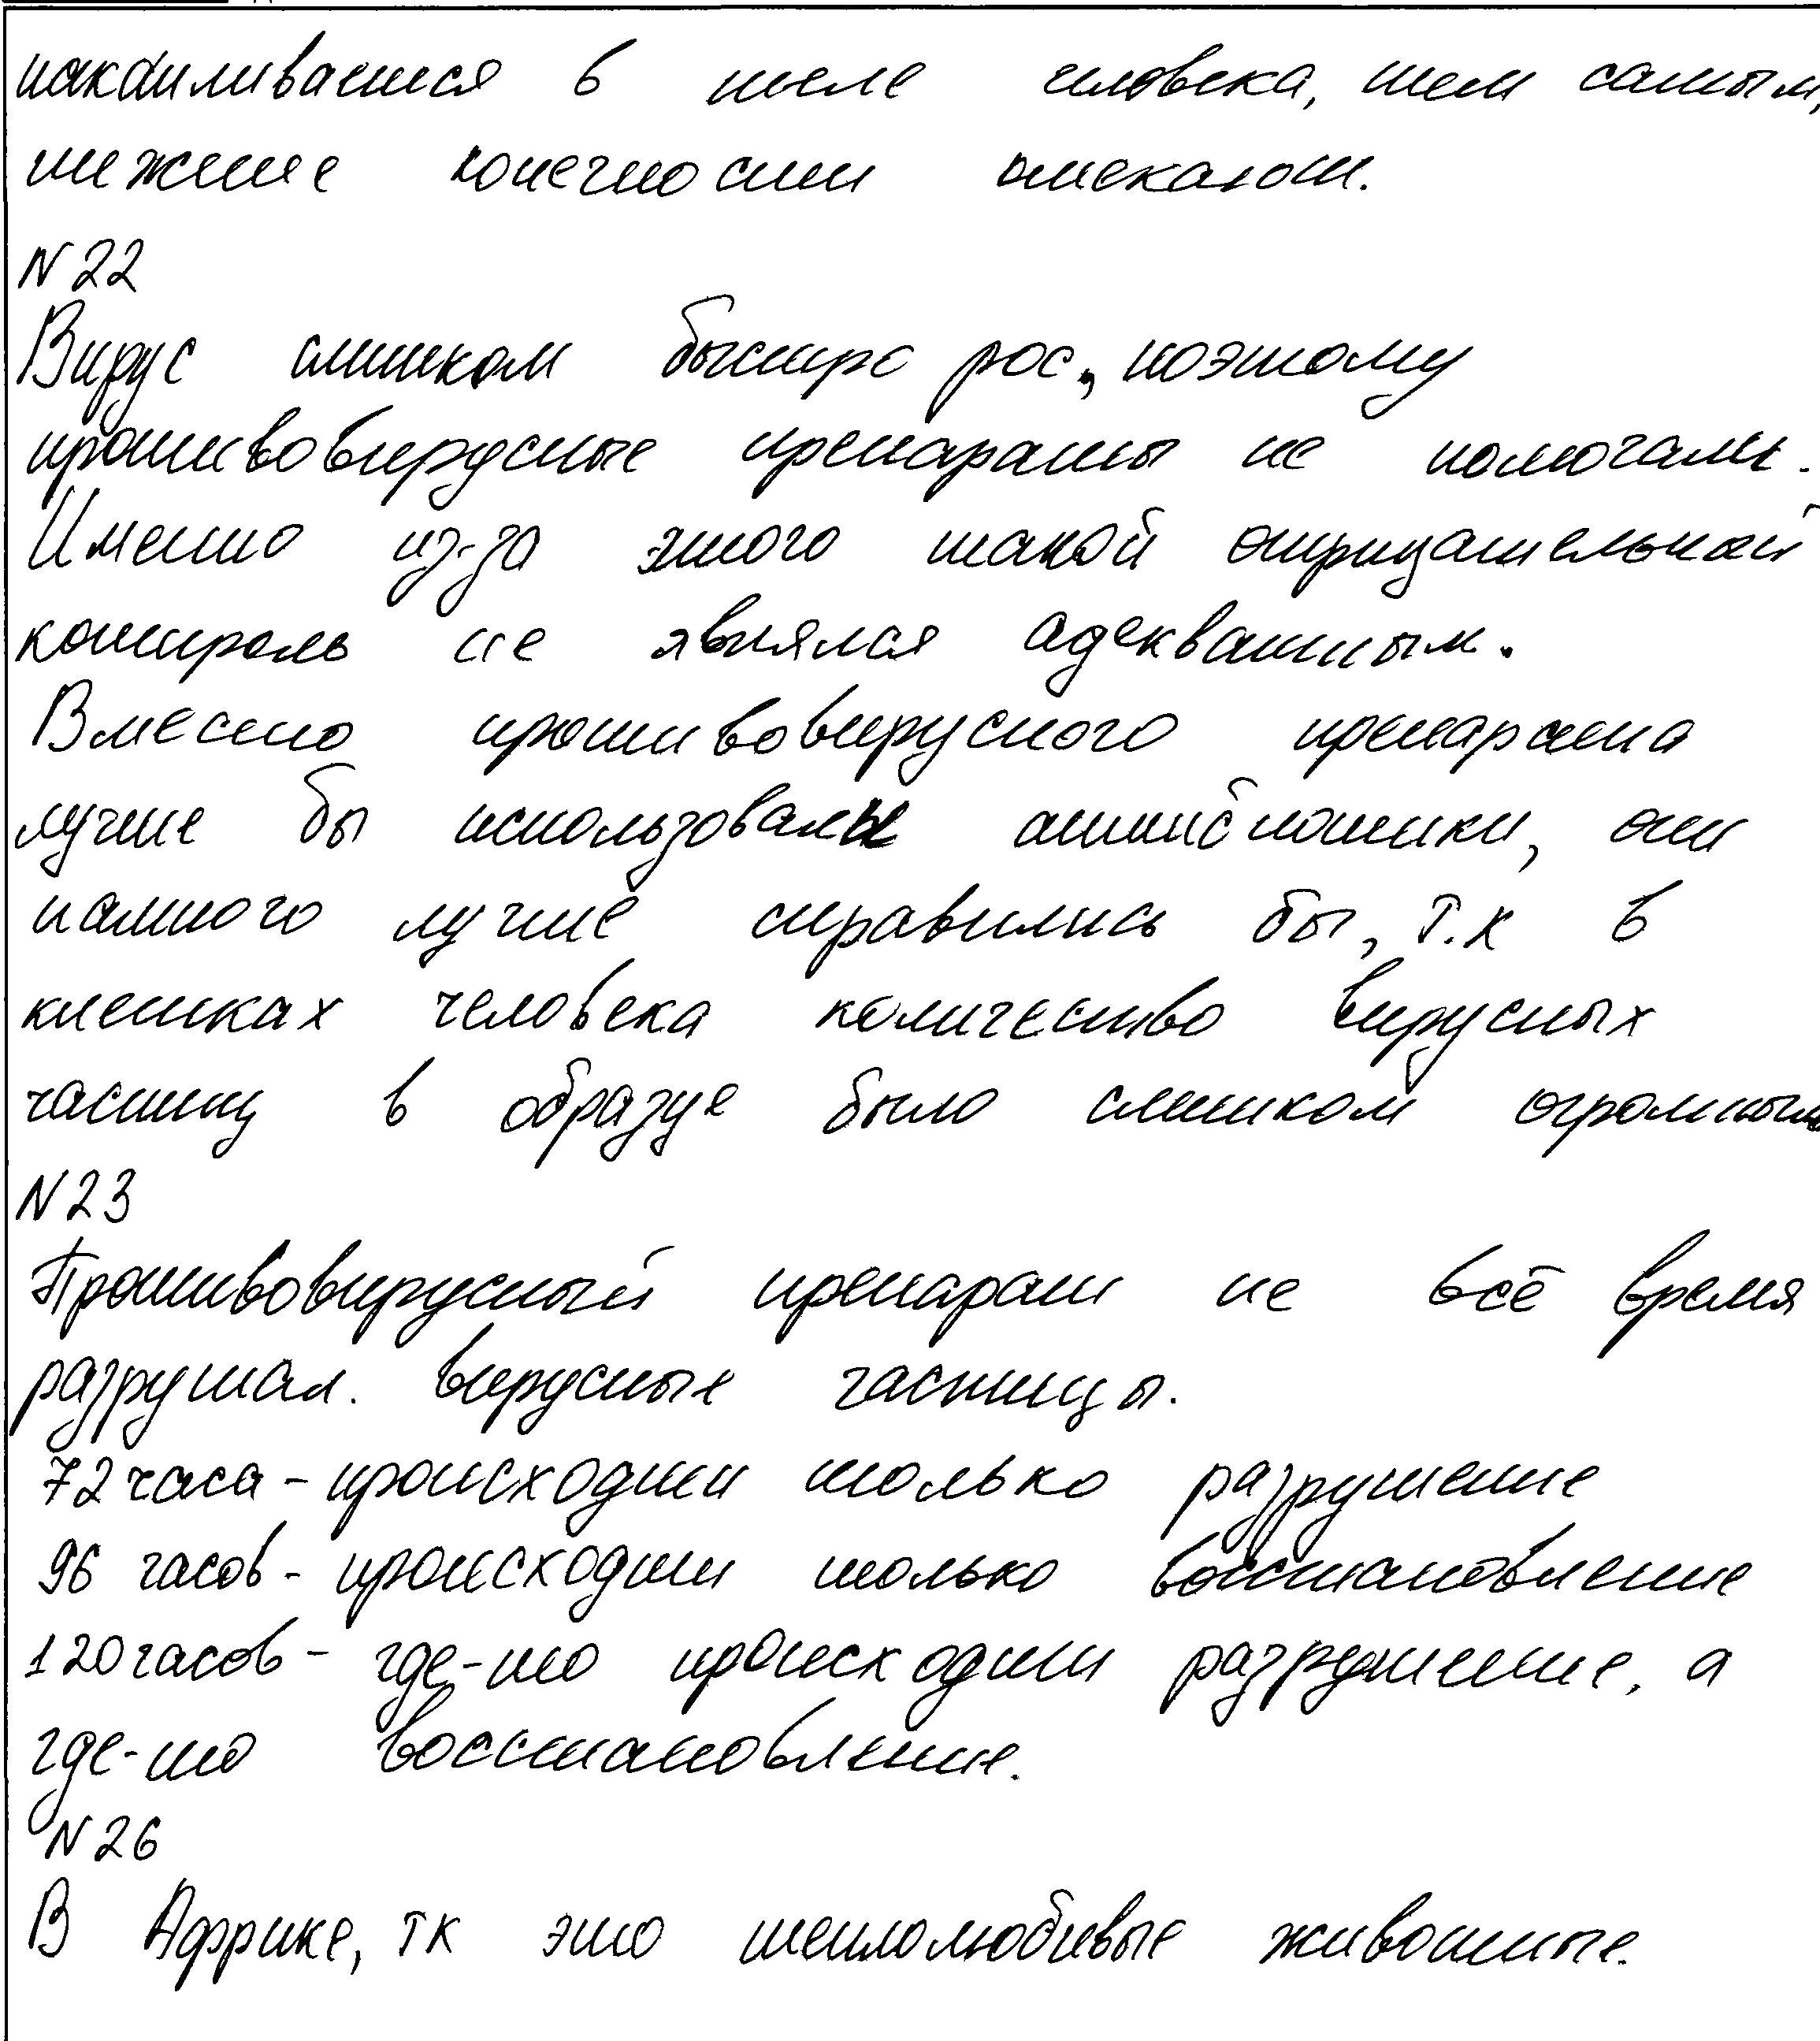 накапливается в теле человека, тем самым,
нижние конечности отекают.
N 22
Вирус слишком быстро рос, поэтому
противовирусные препараты не помогали.
Именно из-за этого такой отрицательной
контроль не являлся адекватным.
Вместо противовирусного препарата
лучше бы использовалы антибиотики, они
намного лучше справились бы, т.к в
клетках человека количество вирусных
частиц в образце было слишком огромным
N 23
Противовирусный препарат не всё время
разрушал. вирусные частицы.
72 часа - происходит только разрушение
96 часов - происходит только восстановление
120 часов - где-то происходит разрушение, а
где-то восстановление.
N 26
В Африке, тк это теплолюбивые животные.